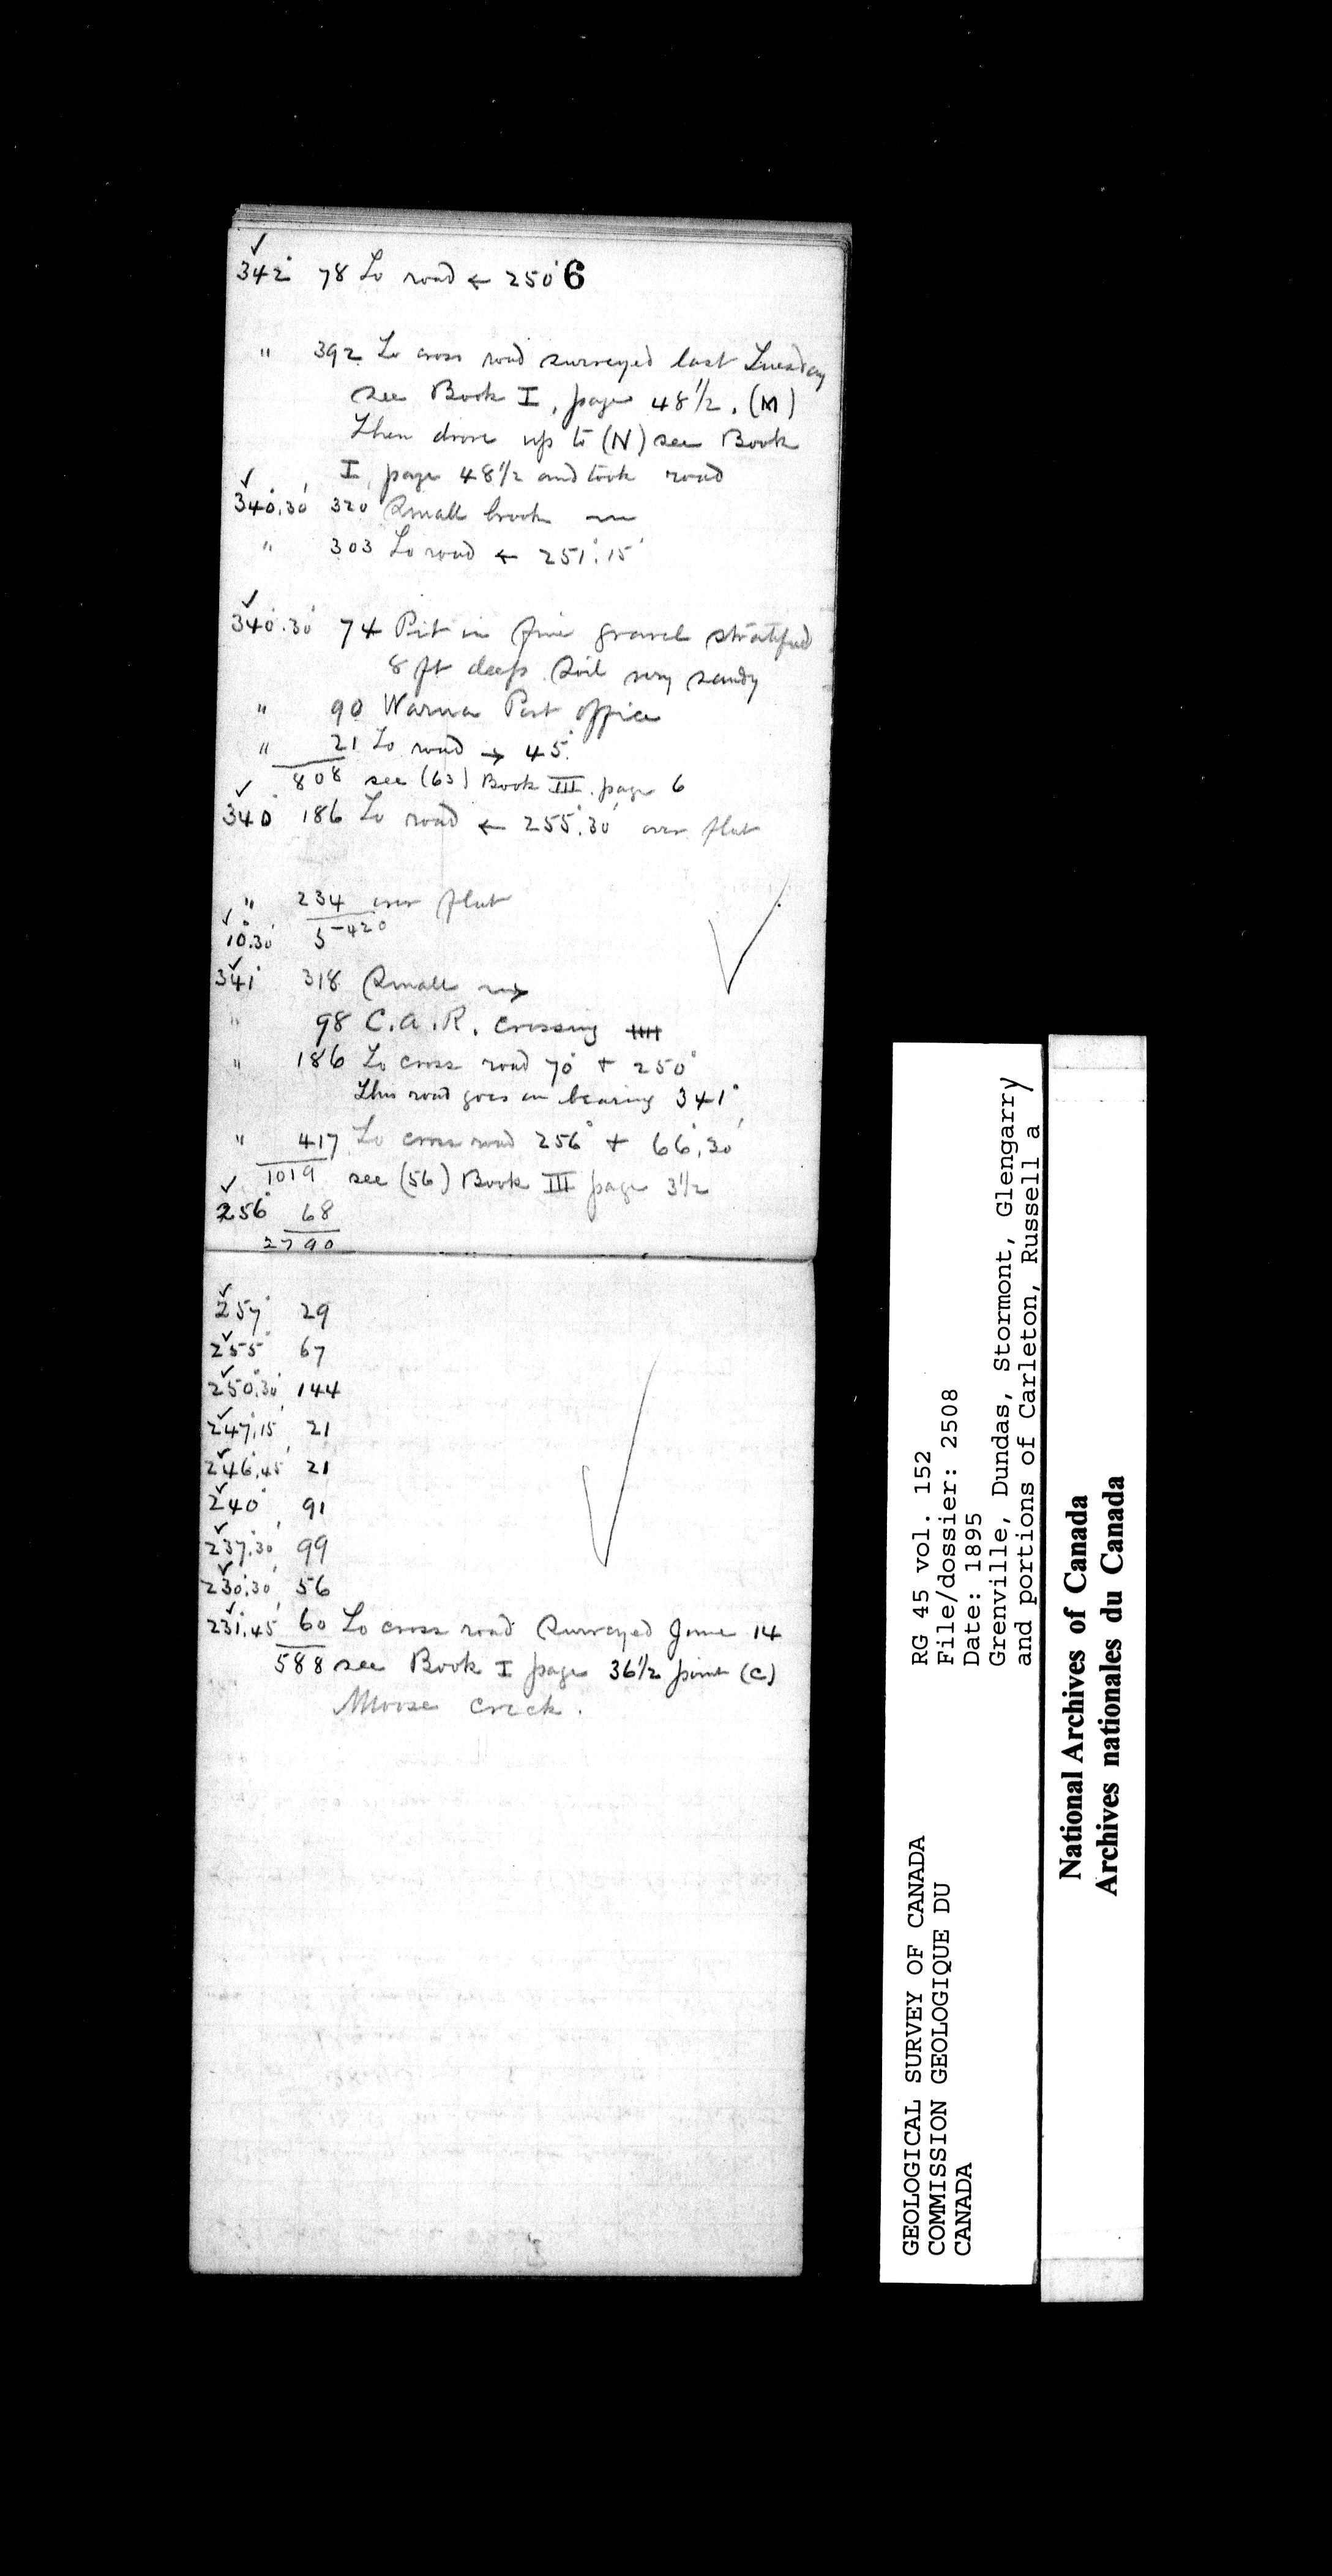 342° 78 To road ← 250° 6
" 392 To cross road surveyed last Tuesday
see Book I, page 48 1/2. (M)
Then drove up to (N) see Book
I, page 48 1/2 and took road
340°.30' 320 Small brook
" 303 To road ← 251°.15'
340°.30' 74 Pit in fine gravel stratified
8 ft deep. Soil very sandy
" 90 Warina Post office
" 21 To road → 45°
808 see (63) Book III. page 6
340° 186 To road ← 255°.30' over flat
" 234 over flat
10°.30' 5 420
341° 318 Small
" 98 C.A.R. crossing
" 186 To cross road 70° + 250°
This road goes on bearing 341°
" 417 To cross road 256° + 66°.30'
1019 see (56) Book III page 3 1/2
256° 68
2790
257° 29
255° 67
250°.30' 144
247°.15' 21
246°.45' 21
240° 91
237°.30' 99
230°.30' 56
231°.45' 60 To cross road Surveyed June 14
588 see Book I page 36 1/2 point (C)
Moose Creek.
GEOLOGICAL SURVEY OF CANADA
COMMISSION GEOLOGIQUE DU
CANADA
RG 45 vol. 152
File/dossier: 2508
Date: 1895
Grenville, Dundas, Stormont, Glengarry
and portions of Carleton, Russell a
National Archives of Canada
Archives nationales du Canada